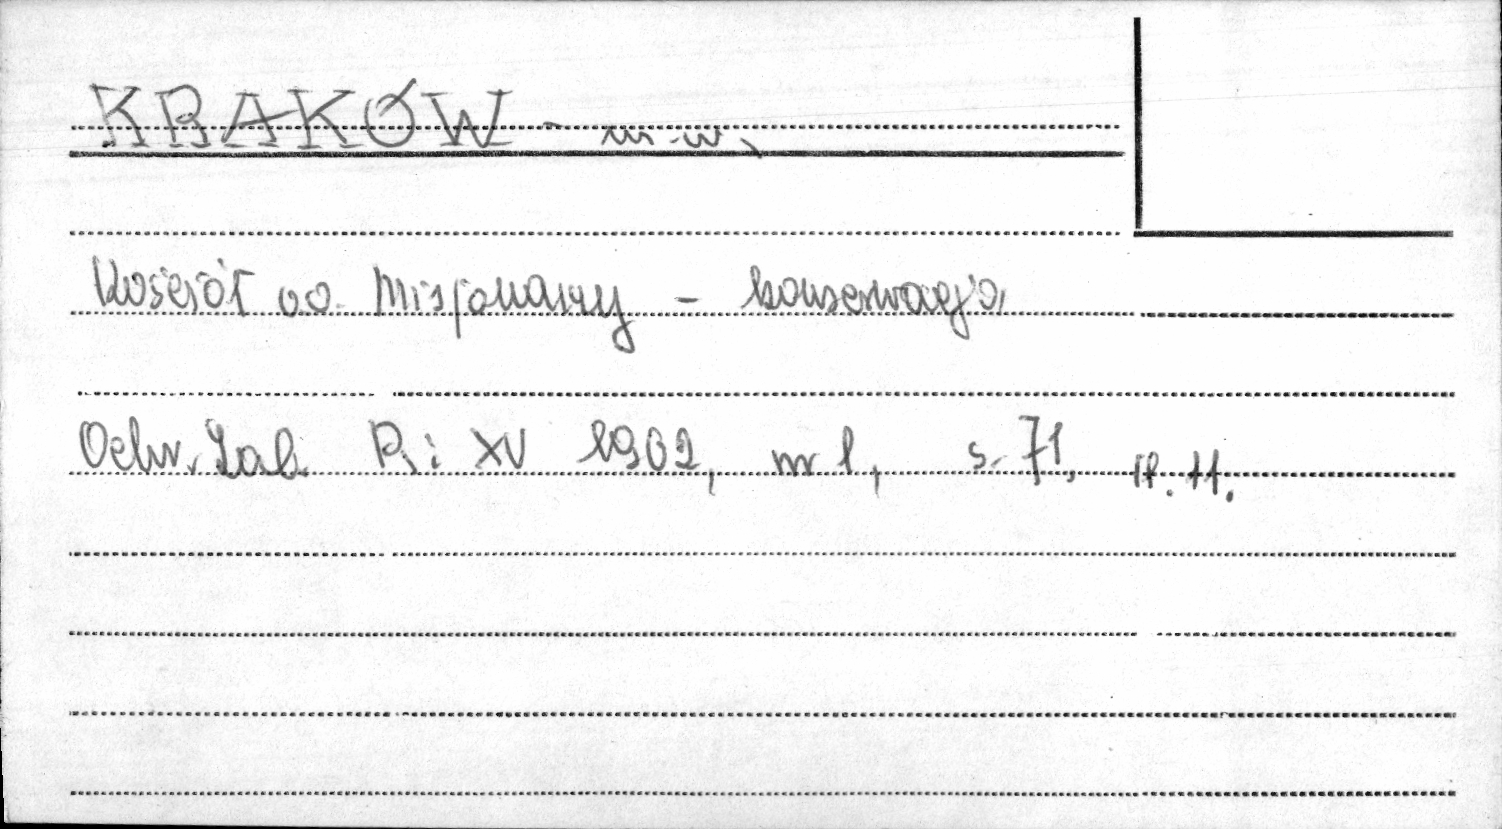 KRAKÓW - m.w.
Kościół oo. Misjonarzy - konserwacja
Ochr. Zab. R: XV 1962, nr 1, s. 71, il. 11.